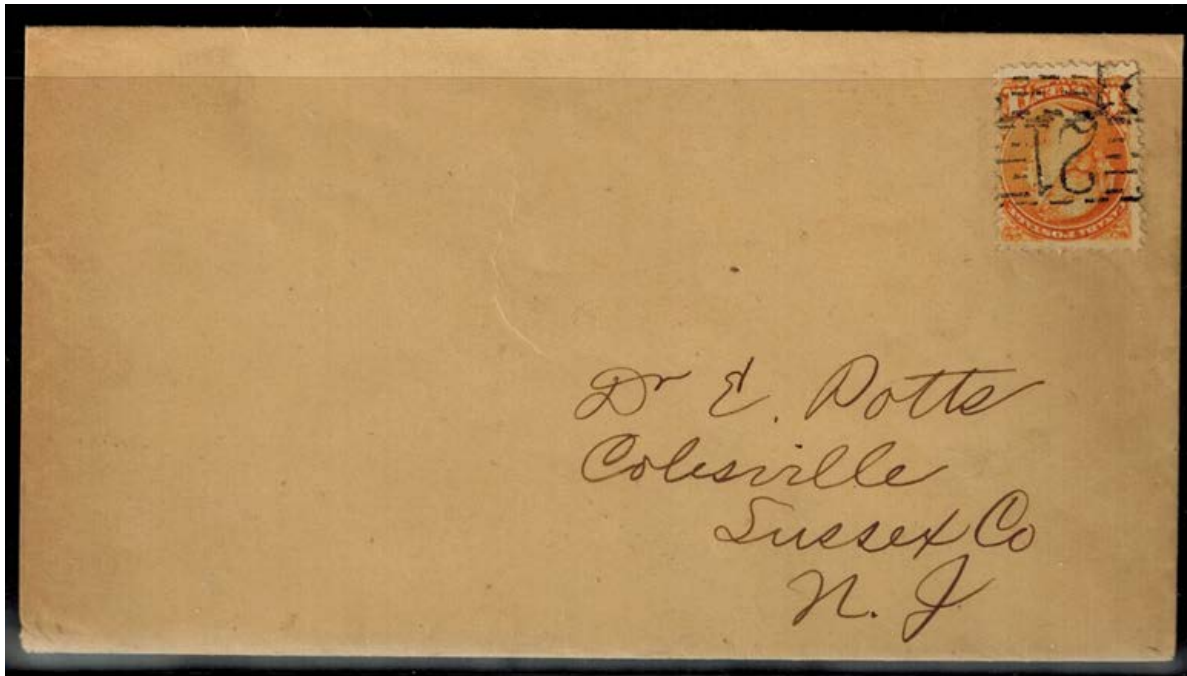 21
Dr E. Potts
Colesville
Sussex Co
N. J